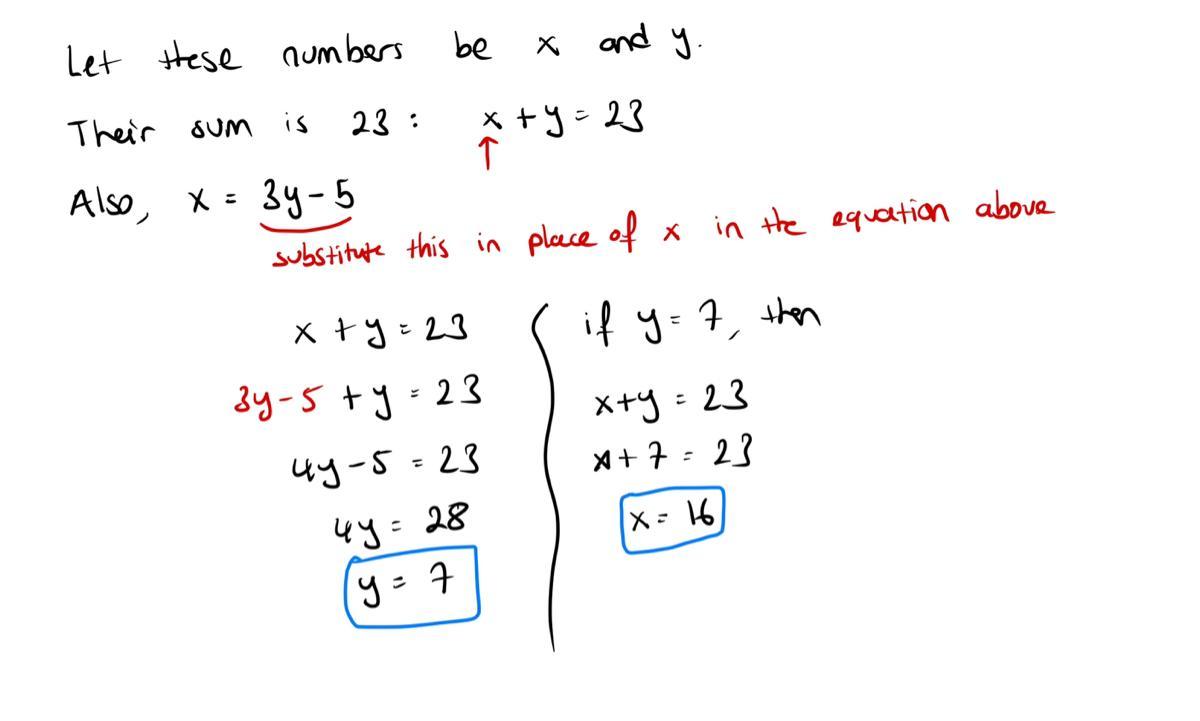 Let these numbers be x and y.
Their sum is 23 : x + y = 23
↑
Also, x = 3y - 5
substitute this in place of x in the equation above
x + y = 23
3y - 5 + y = 23
4y - 5 = 23
4y = 28
y = 7
if y = 7, then
x + y = 23
x + 7 = 23
x = 16